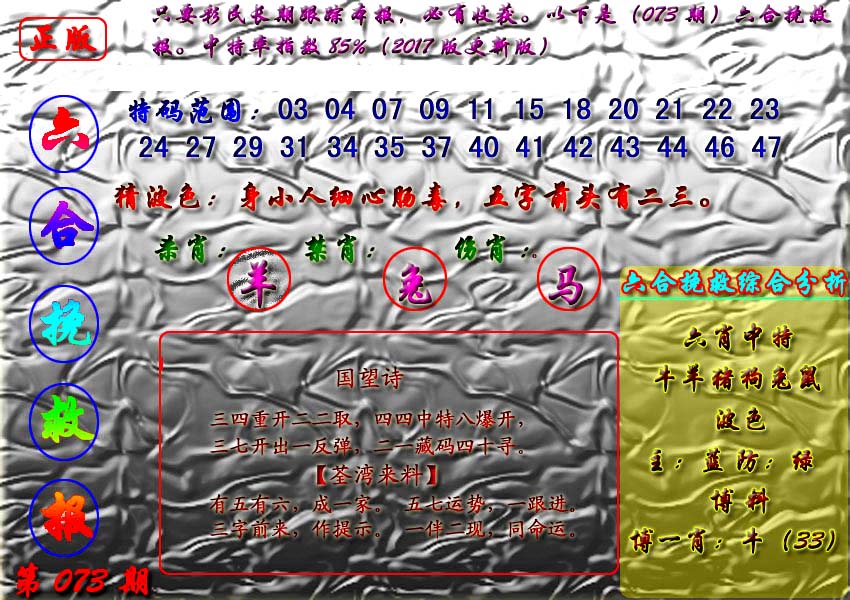 正版
只要彩民长期跟踪本报，必有收获。以下是（073期）六合挽救
报。中特率指数85%（2017版更新版）
六合挽救报
第073期
特码范围：03 04 07 09 11 15 18 20 21 22 23
24 27 29 31 34 35 37 40 41 42 43 44 46 47
猜波色：身小人细心肠毒，五字前头有二三。
杀肖：羊 禁肖：兔 伤肖：马
国望诗
三四重开二二取，四四中特八爆开，
三七开出一反弹，二一藏码四十寻。
【荃湾来料】
有五有六，成一家。 五七运势，一跟进。
三字前来，作提示。 一伴二现，同命运。
六合挽救综合分析
六肖中特
牛羊猪狗兔鼠
波色
主：蓝防：绿
博料
博一肖：牛（33）